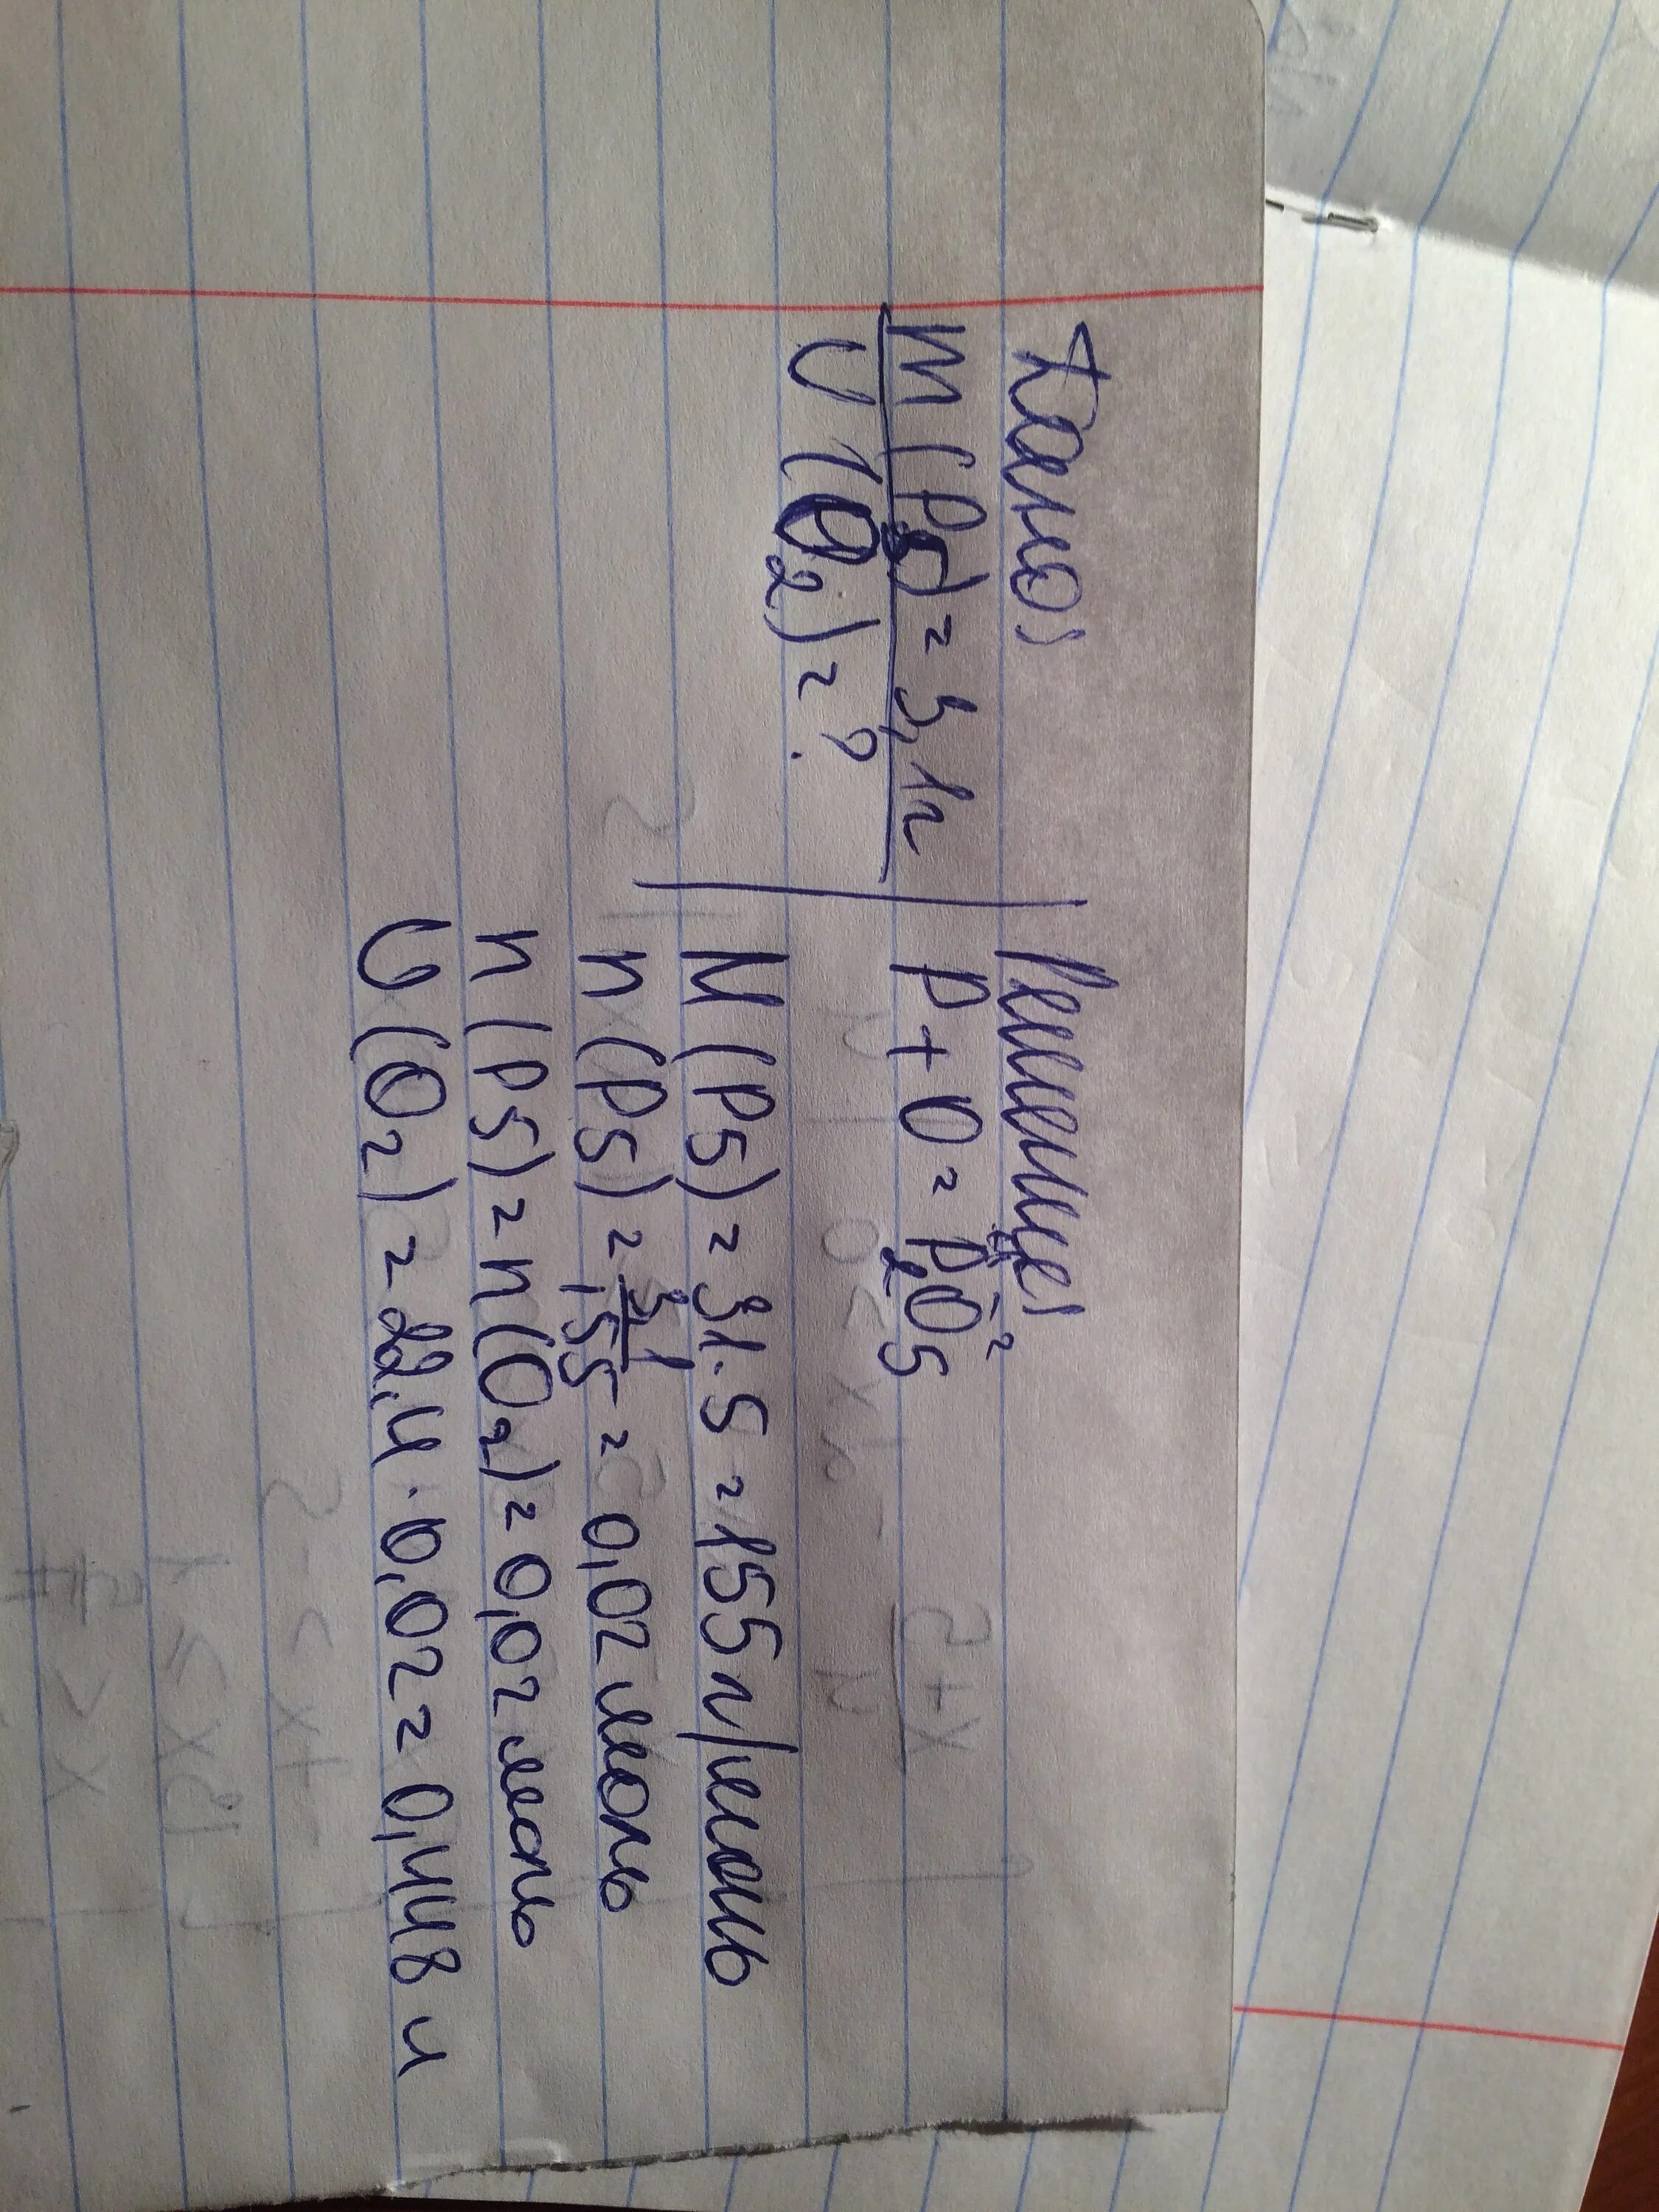 Дано: Решение:
m (P5) = 3,1г P + O = P2O5
V (O2) = ?
M (P5) = 31 · 5 = 155 г/моль
n (P5) = 3,1/155 = 0,02 моль
n (P5) = n (O2) = 0,02 моль
V (O2) = 22,4 · 0,02 = 0,448 л